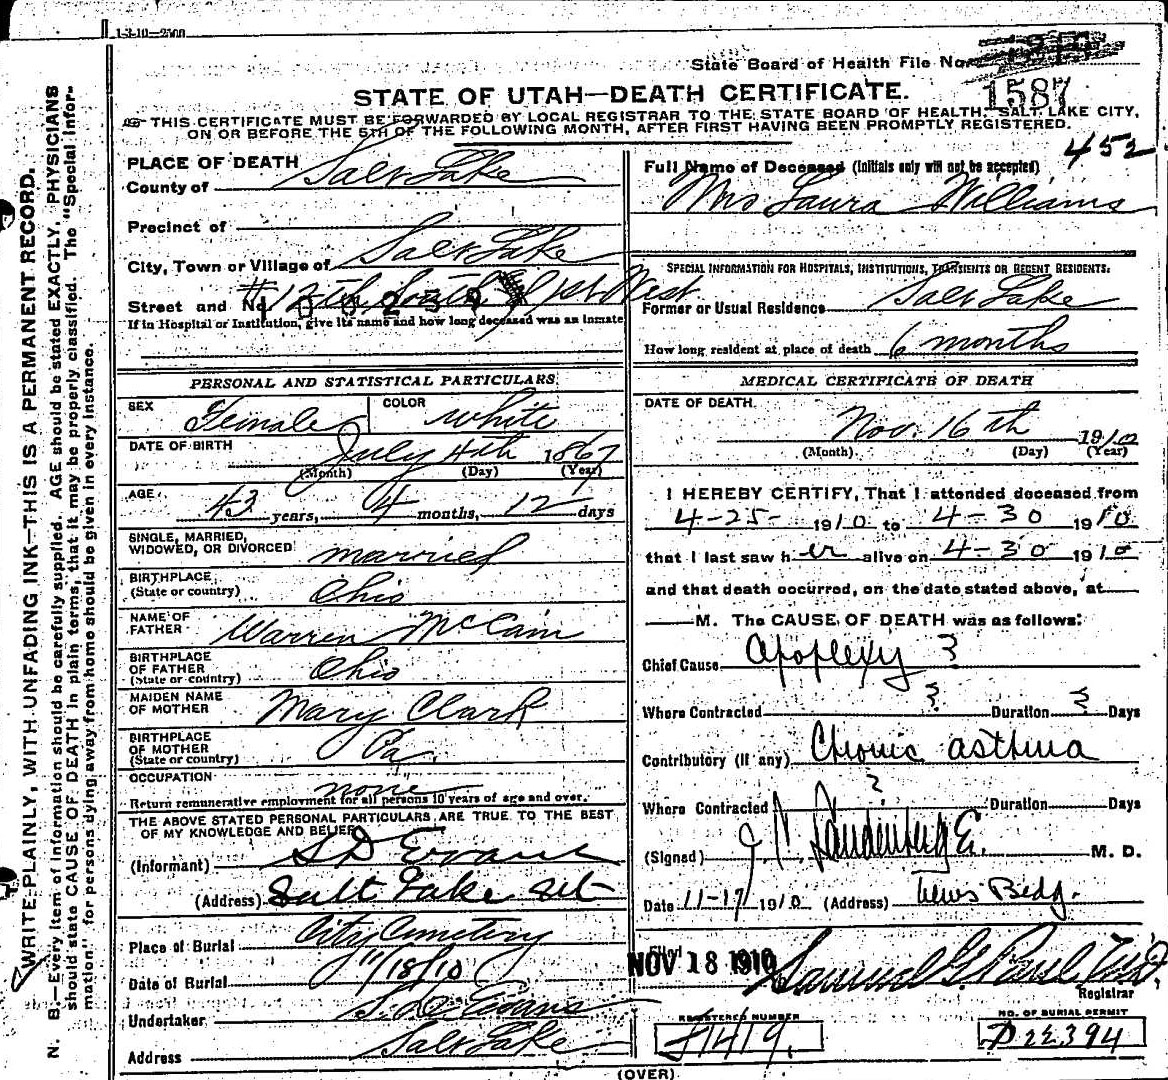 1-3-10—2500
State Board of Health File No.
1587
STATE OF UTAH—DEATH CERTIFICATE.
THIS CERTIFICATE MUST BE FORWARDED BY LOCAL REGISTRAR TO THE STATE BOARD OF HEALTH, SALT LAKE CITY,
ON OR BEFORE THE 5TH OF THE FOLLOWING MONTH, AFTER FIRST HAVING BEEN PROMPTLY REGISTERED.
452
PLACE OF DEATH
County of Salt Lake
Precinct of
City, Town or Village of Salt Lake
Street and No. 12th South 1st West
If in Hospital or Institution, give its name and how long deceased was an inmate
Full Name of Deceased (Initials only will not be accepted)
Mrs Laura Williams
SPECIAL INFORMATION FOR HOSPITALS, INSTITUTIONS, TRANSIENTS OR RECENT RESIDENTS:
Former or Usual Residence Salt Lake
How long resident at place of death 6 months
PERSONAL AND STATISTICAL PARTICULARS
SEX Female COLOR White
DATE OF BIRTH July 4th 1867
(Month) (Day) (Year)
AGE 43 years, 4 months, 12 days
SINGLE, MARRIED,
WIDOWED, OR DIVORCED married
BIRTHPLACE
(State or country) Ohio
NAME OF
FATHER Warren McCain
BIRTHPLACE
OF FATHER
(State or country) Ohio
MAIDEN NAME
OF MOTHER Mary Clark
BIRTHPLACE
OF MOTHER
(State or country) Pa
OCCUPATION none
Return remunerative employment for all persons 10 years of age and over.
THE ABOVE STATED PERSONAL PARTICULARS ARE TRUE TO THE BEST
OF MY KNOWLEDGE AND BELIEF
(Informant) S D Evans
(Address) Salt Lake Ut
Place of Burial City Cemetery
Date of Burial 11/18/10
Undertaker S. D. Evans
Address Salt Lake
MEDICAL CERTIFICATE OF DEATH
DATE OF DEATH
Nov. 16th 1910
(Month) (Day) (Year)
I HEREBY CERTIFY, That I attended deceased from
4-25- 1910 to 4-30 1910
that I last saw her alive on 4-30 1910
and that death occurred, on the date stated above, at
M. The CAUSE OF DEATH was as follows:
Chief Cause Apoplexy ?
Where Contracted ? Duration ? Days
Contributory (if any) Chronic asthma
Where Contracted ? Duration Days
(Signed) M. D.
Date 11-17 1910 (Address) News Bldg.
Filed
NOV 18 1910
Registrar
REGISTERED NUMBER
NO. OF BURIAL PERMIT
D22394
(OVER)
WRITE PLAINLY, WITH UNFADING INK—THIS IS A PERMANENT RECORD.
N. B.—Every item of information should be carefully supplied. AGE should be stated EXACTLY, PHYSICIANS
should state CAUSE OF DEATH in plain terms, that it may be properly classified. The "Special Infor-
mation" for persons dying away from home should be given in every instance.